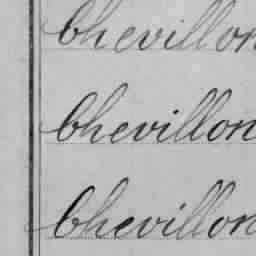 Chevillon
Chevillon
Chevillon